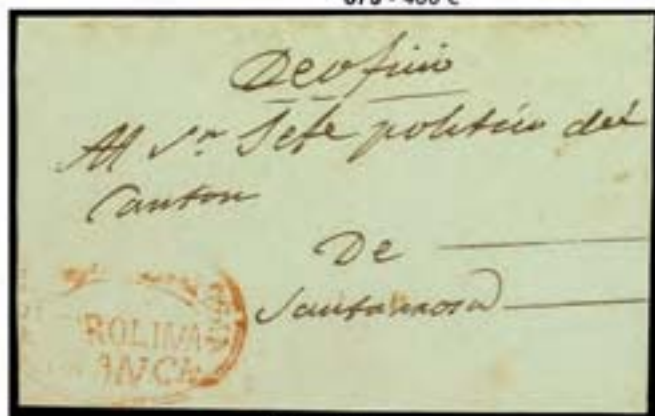 De oficio
Al Sr. Jefe politico del
Canton
De
Santarrosa
ROLINA
ANCA